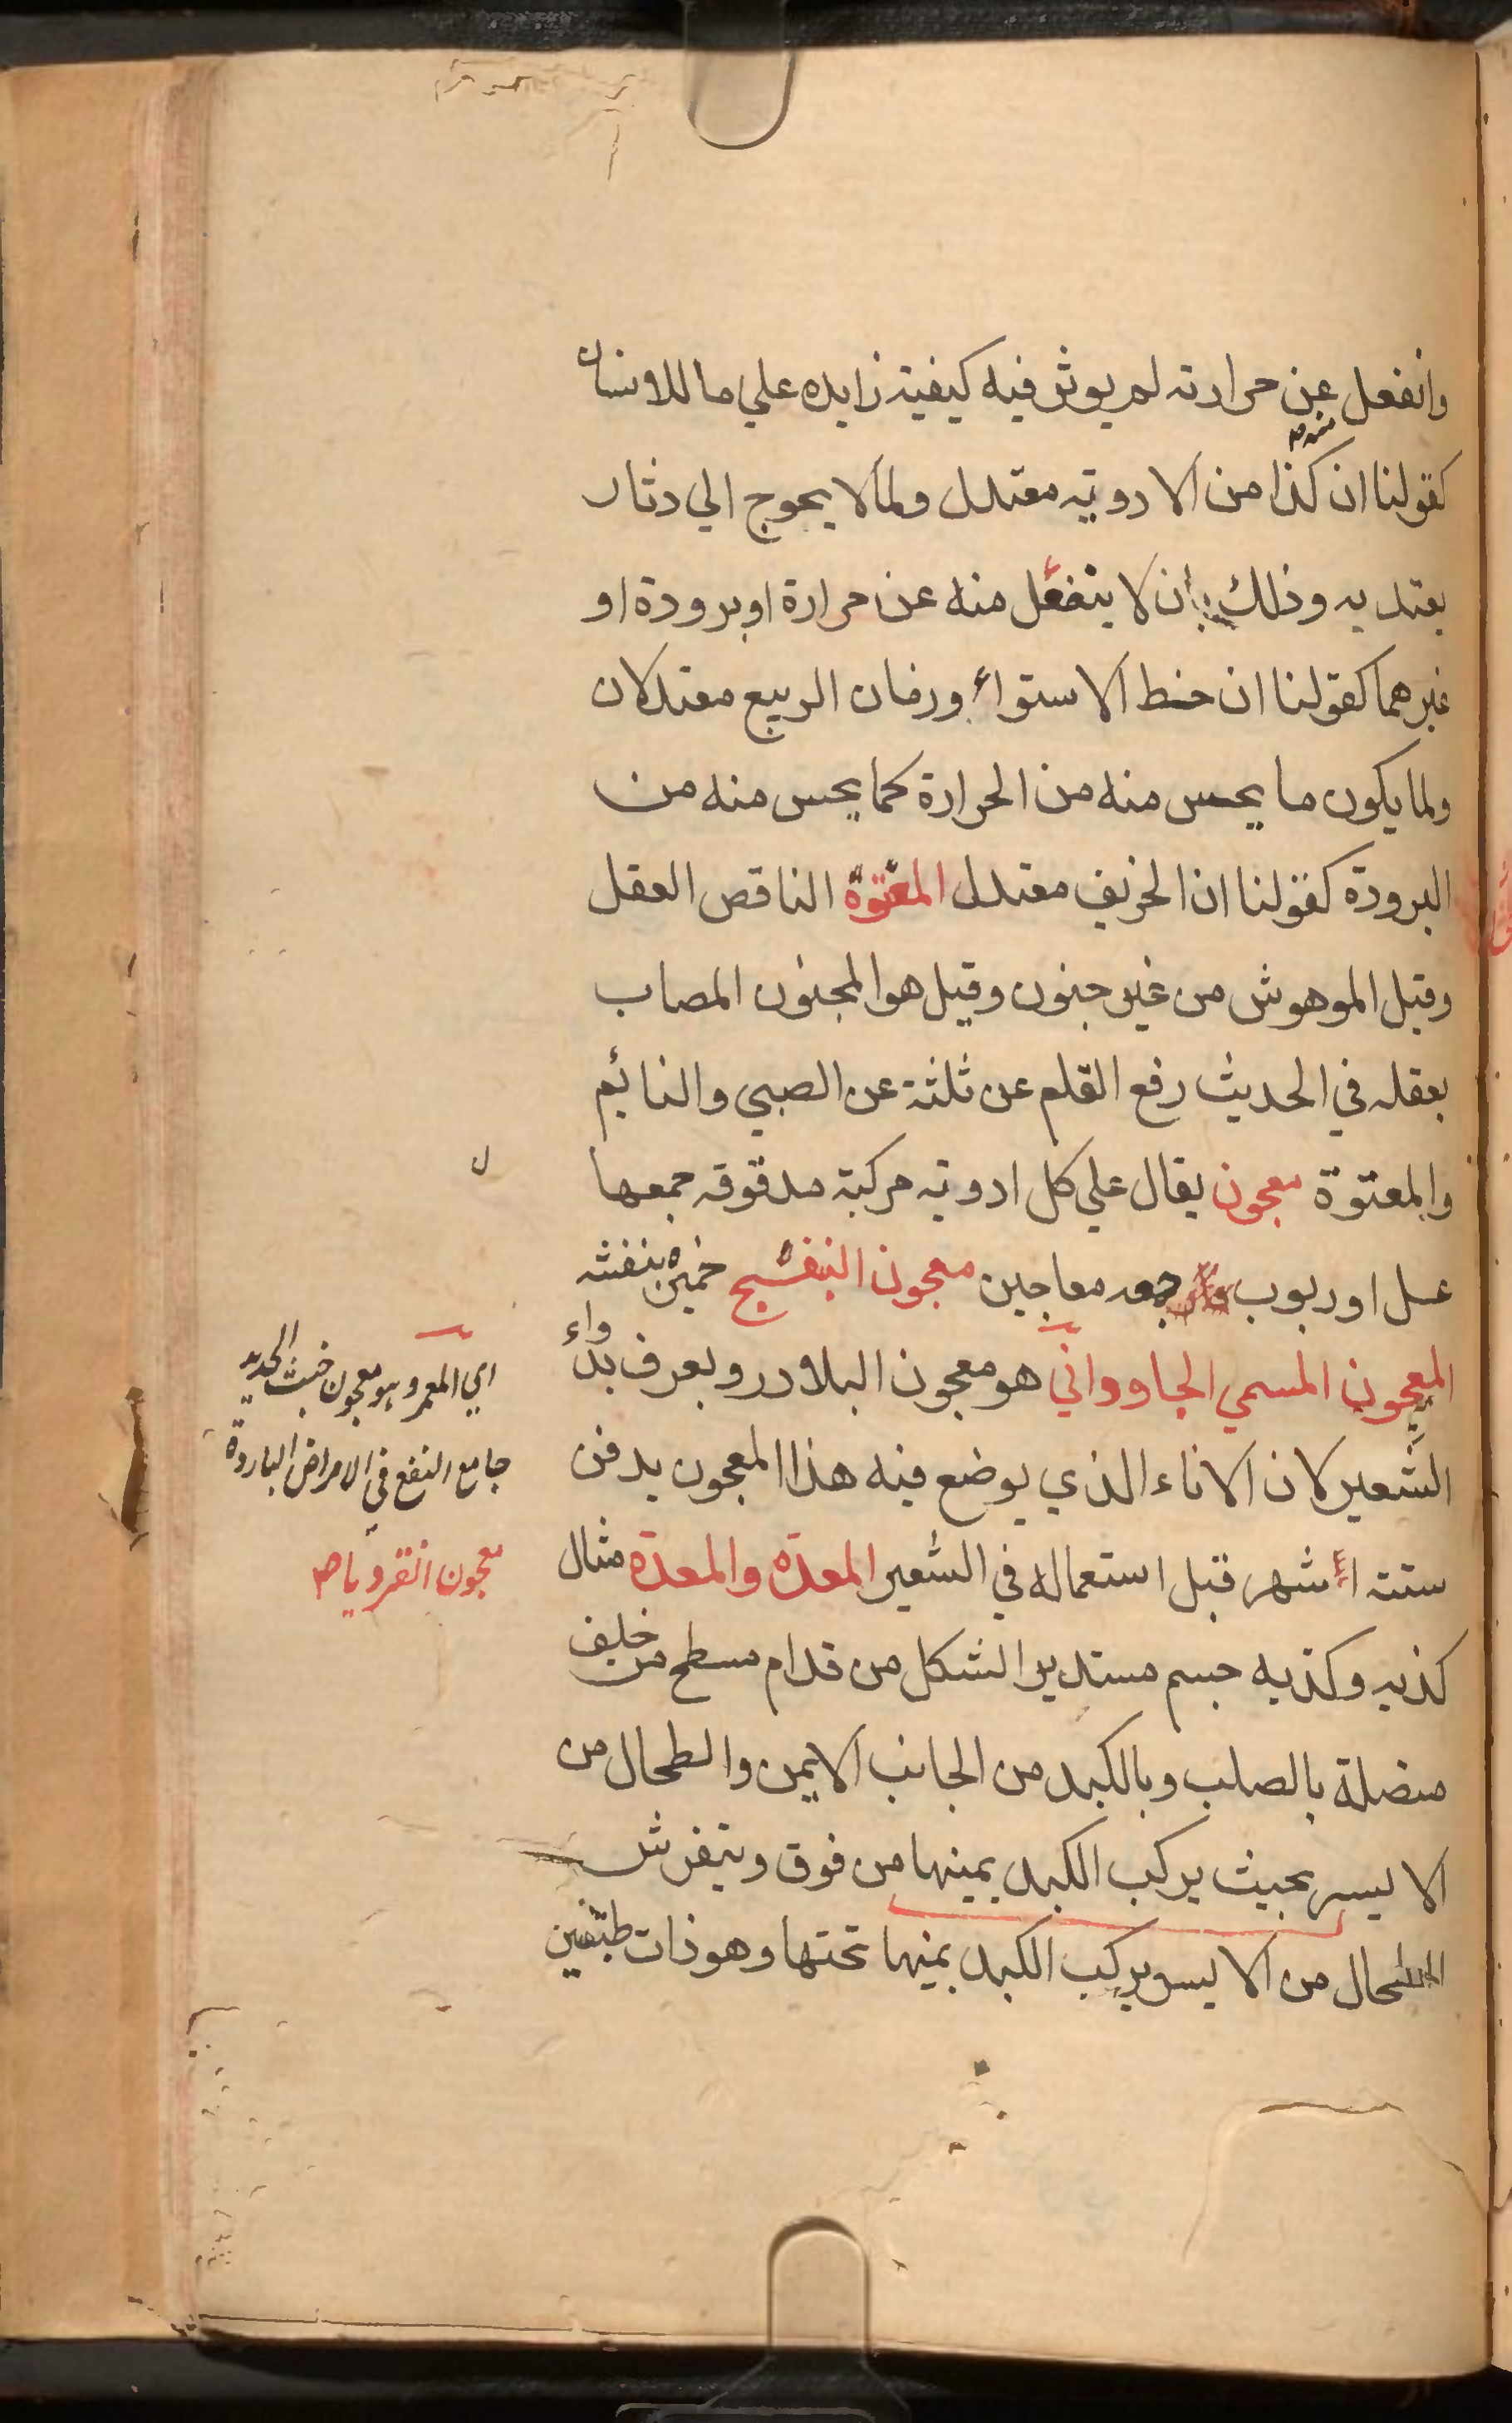 وانفعل عن حرارته لم يوثر فيه كيفية زايده علي ما للانسان
كقولنا ان كذا من الادوية معتدل ولما لا يحوج الي دثار
يعتد به وذلك بان لا ينفعل منه عن حرارة او برودة او
غيرهما كقولنا ان خط الاستواء وزمان الربيع معتدلان
ولما يكون ما يحس منه من الحرارة كما يحس منه من
البرودة كقولنا ان الخريف معتدل المعتوة الناقص العقل
وقيل الموهوش من غير جنون وقيل هو المجنون المصاب
بعقله في الحديث رفع القلم عن ثلثة عن الصبي والنائم
والمعتوة معجون يقال علي كل ادوية مركبة مدقوقه جمعها
عسل او ربوب جمعه معاجين معجون البنفسج خميره بنفشه
المعجون المسمي الجاوداني هو معجون البلادر ويعرف بدواء
الشعير لان الاناء الذي يوضع فيه هذا المعجون يدفن
ستة اشهر قبل استعماله في الشعير المعده والمعدة مثال
كذبه وكذبه جسم مستدير الشكل من قدام مسطح من خلف
متصلة بالصلب وبالكبد من الجانب الايمن والطحال من
الايسر بحيث يركب الكبد يمينها من فوق ويتفرش
الطحال من الايسر يركب الكبد يمنها تحتها وهو ذات طبقين
اي المعمر وهو معجون خبث الحديد
جامع النفع في الامراض الباردة
معجون انقرويا صح